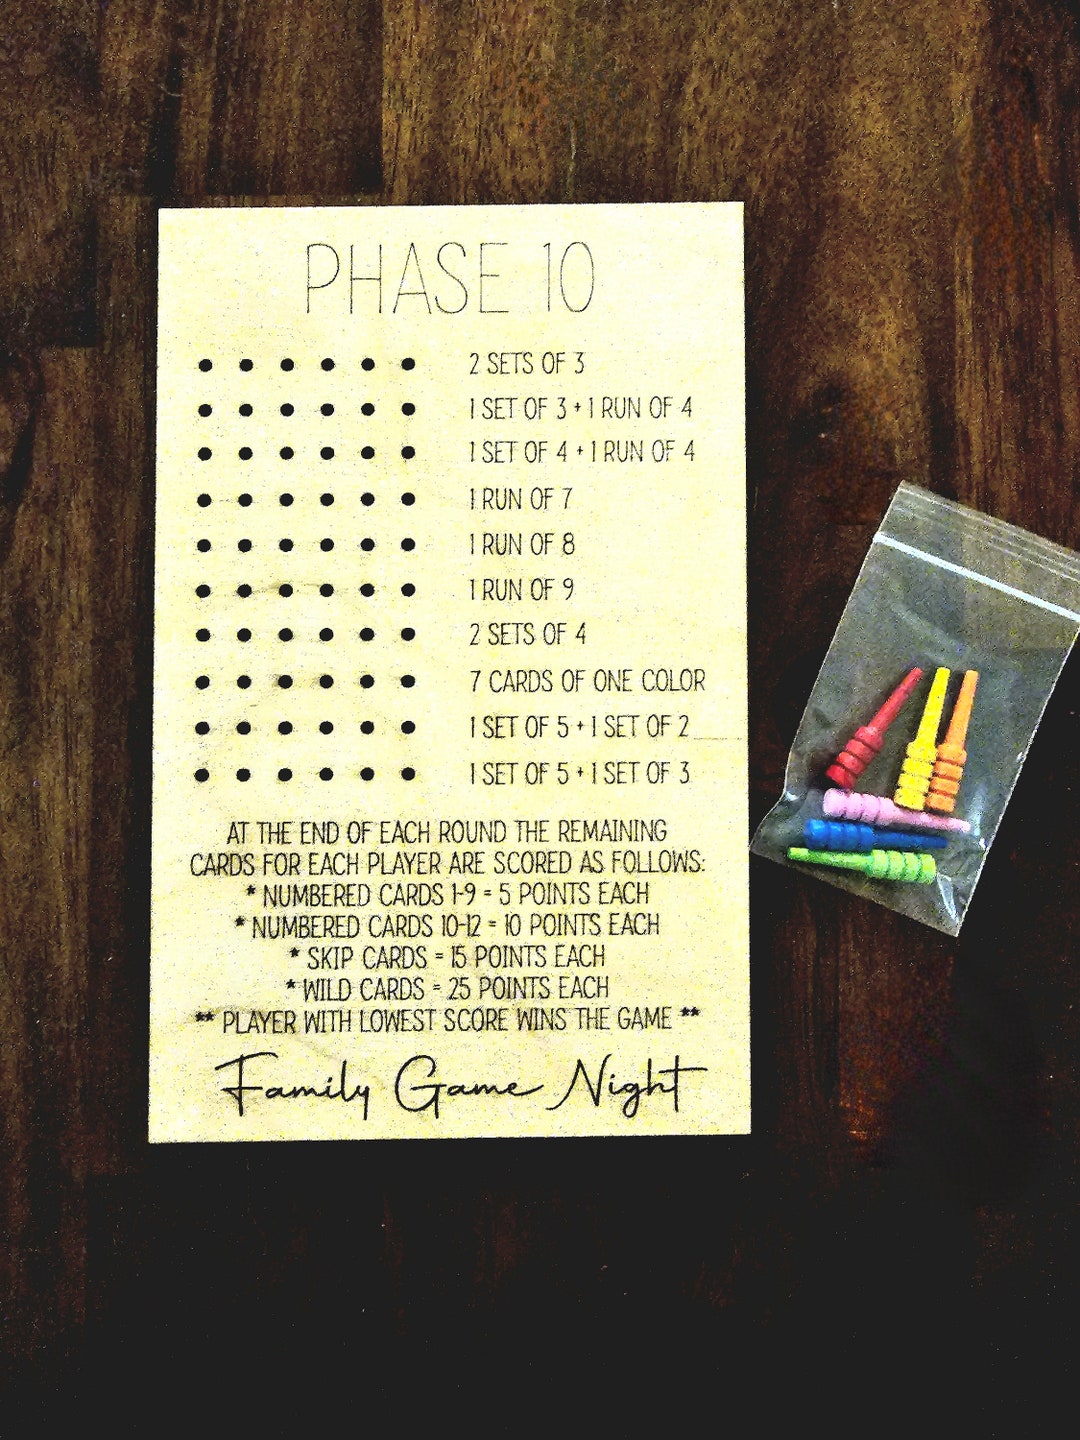 PHASE 10
2 SETS OF 3
1 SET OF 3 + 1 RUN OF 4
1 SET OF 4 + 1 RUN OF 4
1 RUN OF 7
1 RUN OF 8
1 RUN OF 9
2 SETS OF 4
7 CARDS OF ONE COLOR
1 SET OF 5 + 1 SET OF 2
1 SET OF 5 + 1 SET OF 3
AT THE END OF EACH ROUND THE REMAINING
CARDS FOR EACH PLAYER ARE SCORED AS FOLLOWS:
* NUMBERED CARDS 1-9 = 5 POINTS EACH
* NUMBERED CARDS 10-12 = 10 POINTS EACH
* SKIP CARDS = 15 POINTS EACH
* WILD CARDS = 25 POINTS EACH
** PLAYER WITH LOWEST SCORE WINS THE GAME **
Family Game Night